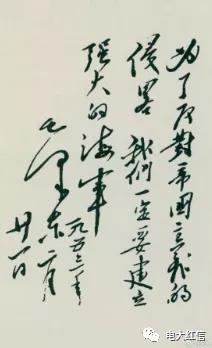 为了反對帝国主义的
侵畧 我們一定要建立
强大的海軍
毛泽东
一九五三年
二月
廿一日
电大红信